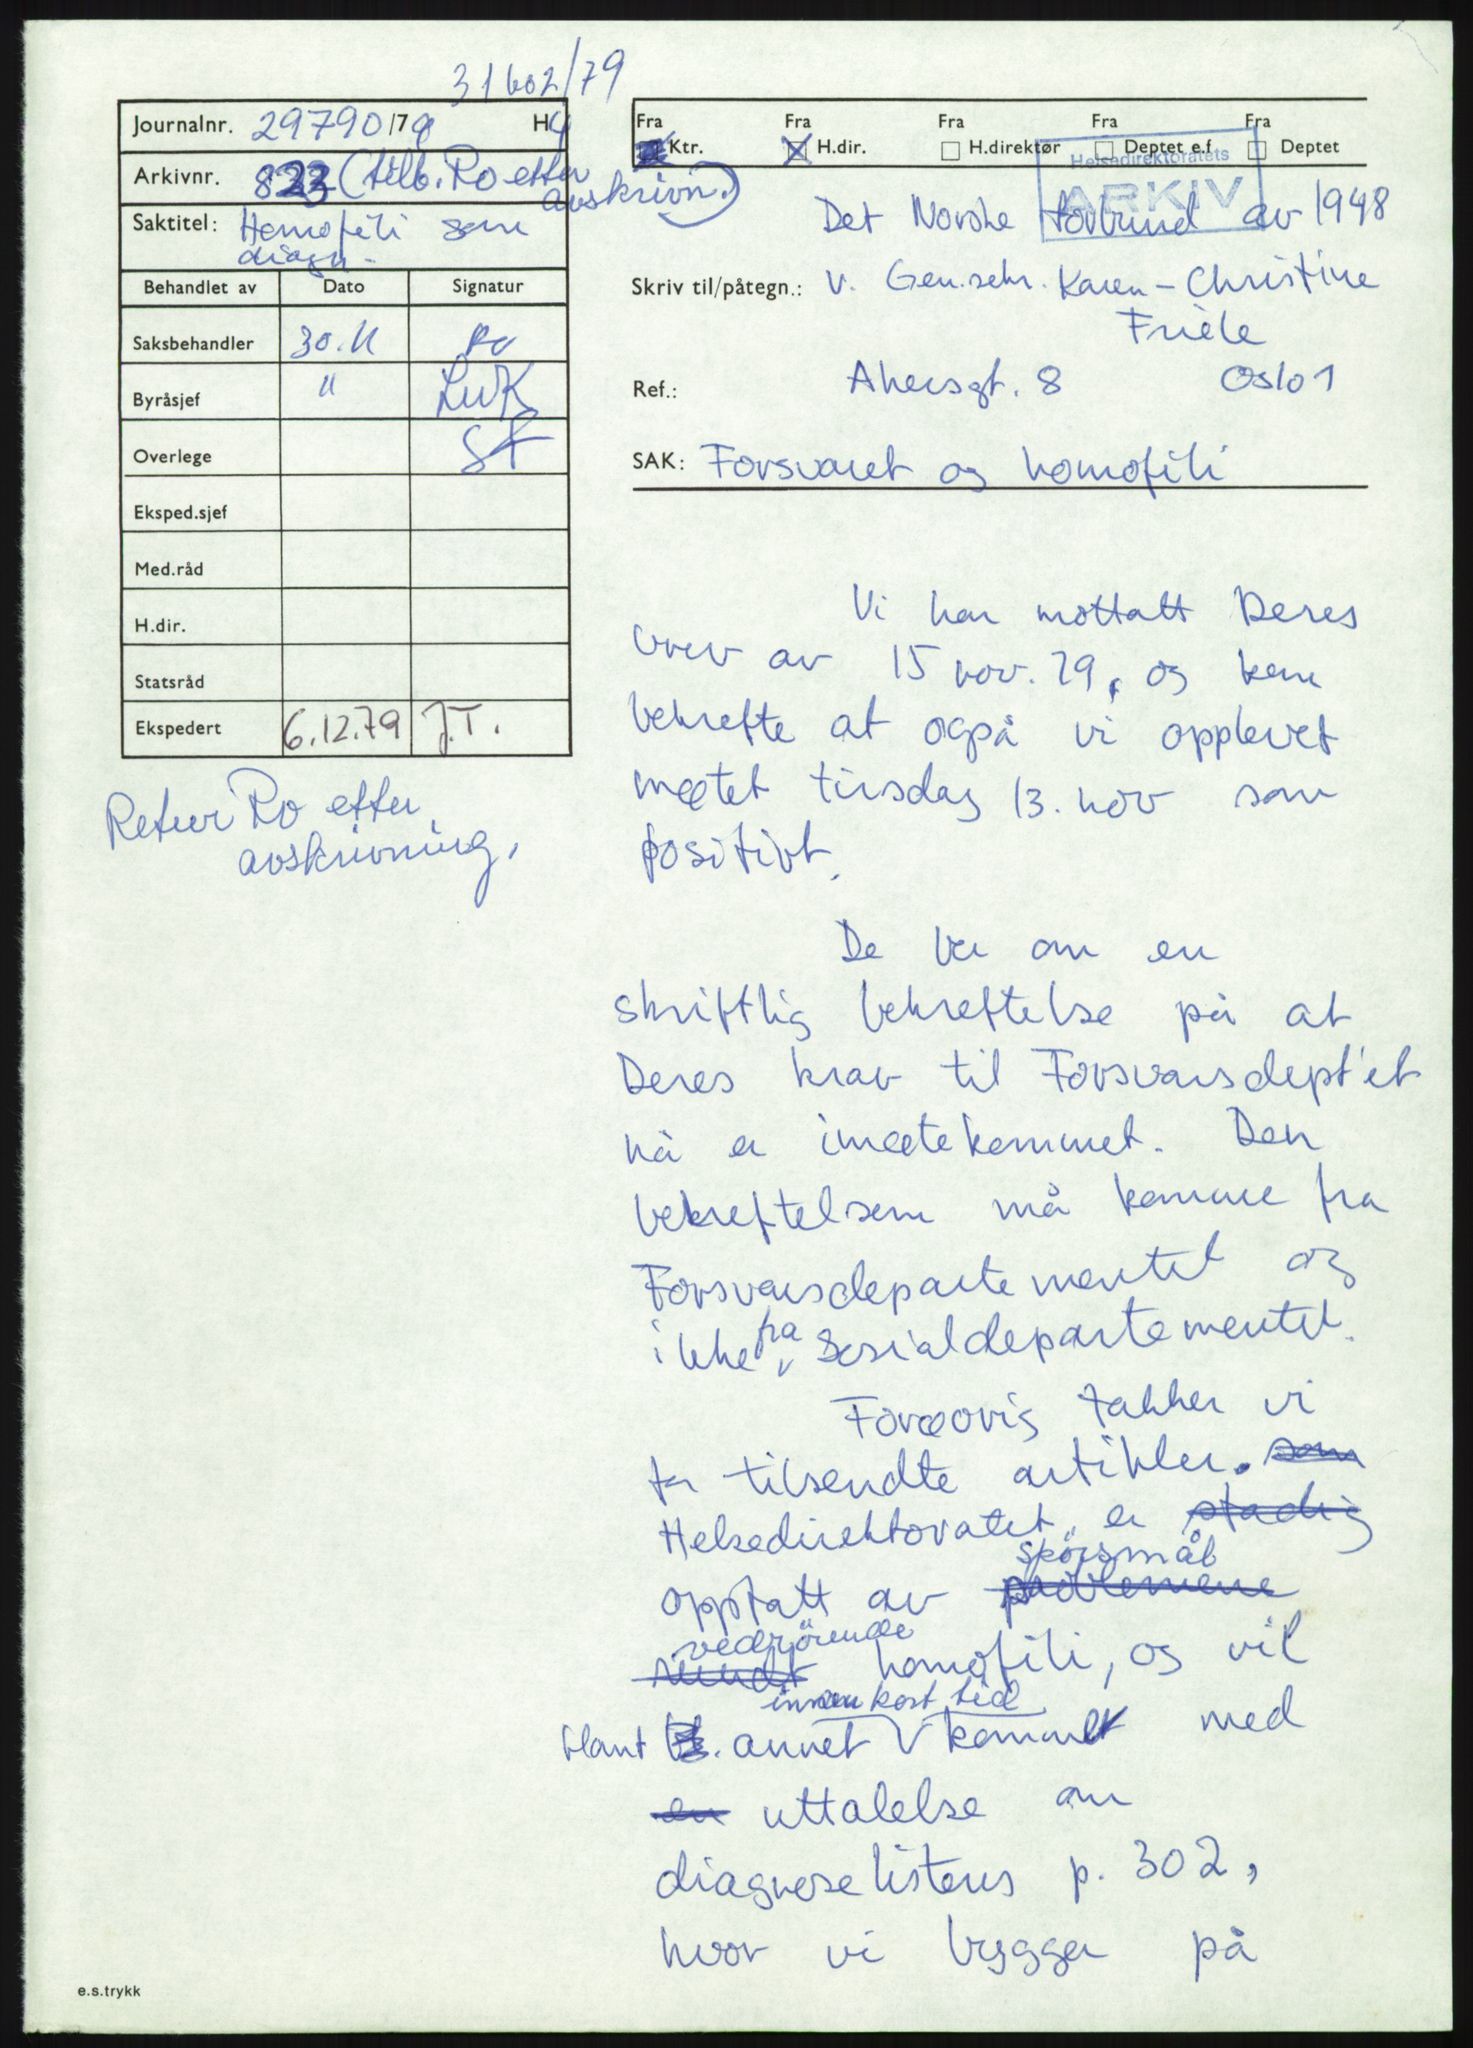 31602/79
Journalnr. 29790/79 H4
Arkivnr. 823 (tilb. Ro etter
avskrivn.)
Saktitel: Homofili som
diagn.
Behandlet av Dato Signatur
Saksbehandler 30.11 Ro
Byråsjef " LWK
Overlege SF
Eksped.sjef
Med.råd
H.dir.
Statsråd
Ekspedert 6.12.79 J.T.
Retur Ro etter
avskrivning.
Fra Fra Fra Fra Fra
Ktr. H.dir. H.direktør Deptet e.f. Deptet
Helsedirektoratets
ARKIV
Det Norske forbund av 1948
Skriv til/påtegn.: v. Gen.sekr. Karen-Christine
Friele
Ref.: Akersgt. 8 Oslo 1
SAK: Forsvaret og homofili
Vi har mottatt Deres
brev av 15 nov. 79, og kan
bekrefte at også vi opplevet
møtet tirsdag 13. nov som
positivt.
De ber om en
skriftlig bekreftelse på at
Deres krav til Forsvarsdept'et
nå er imøtekommet. Den
bekreftelsen må komme fra
Forsvarsdepartementet og
ikke fra Sosialdepartementet.
Forøvrig takker vi
for tilsendte artikler. som
Helsedirektoratet er stadig
spörsmål
opptatt av problemene
vedrörende
rundt homofili, og vil
innen kort tid
blant annet komme med
en uttalelse om
diagnoselistens p. 302,
hvor vi bygger på
e.s.trykk